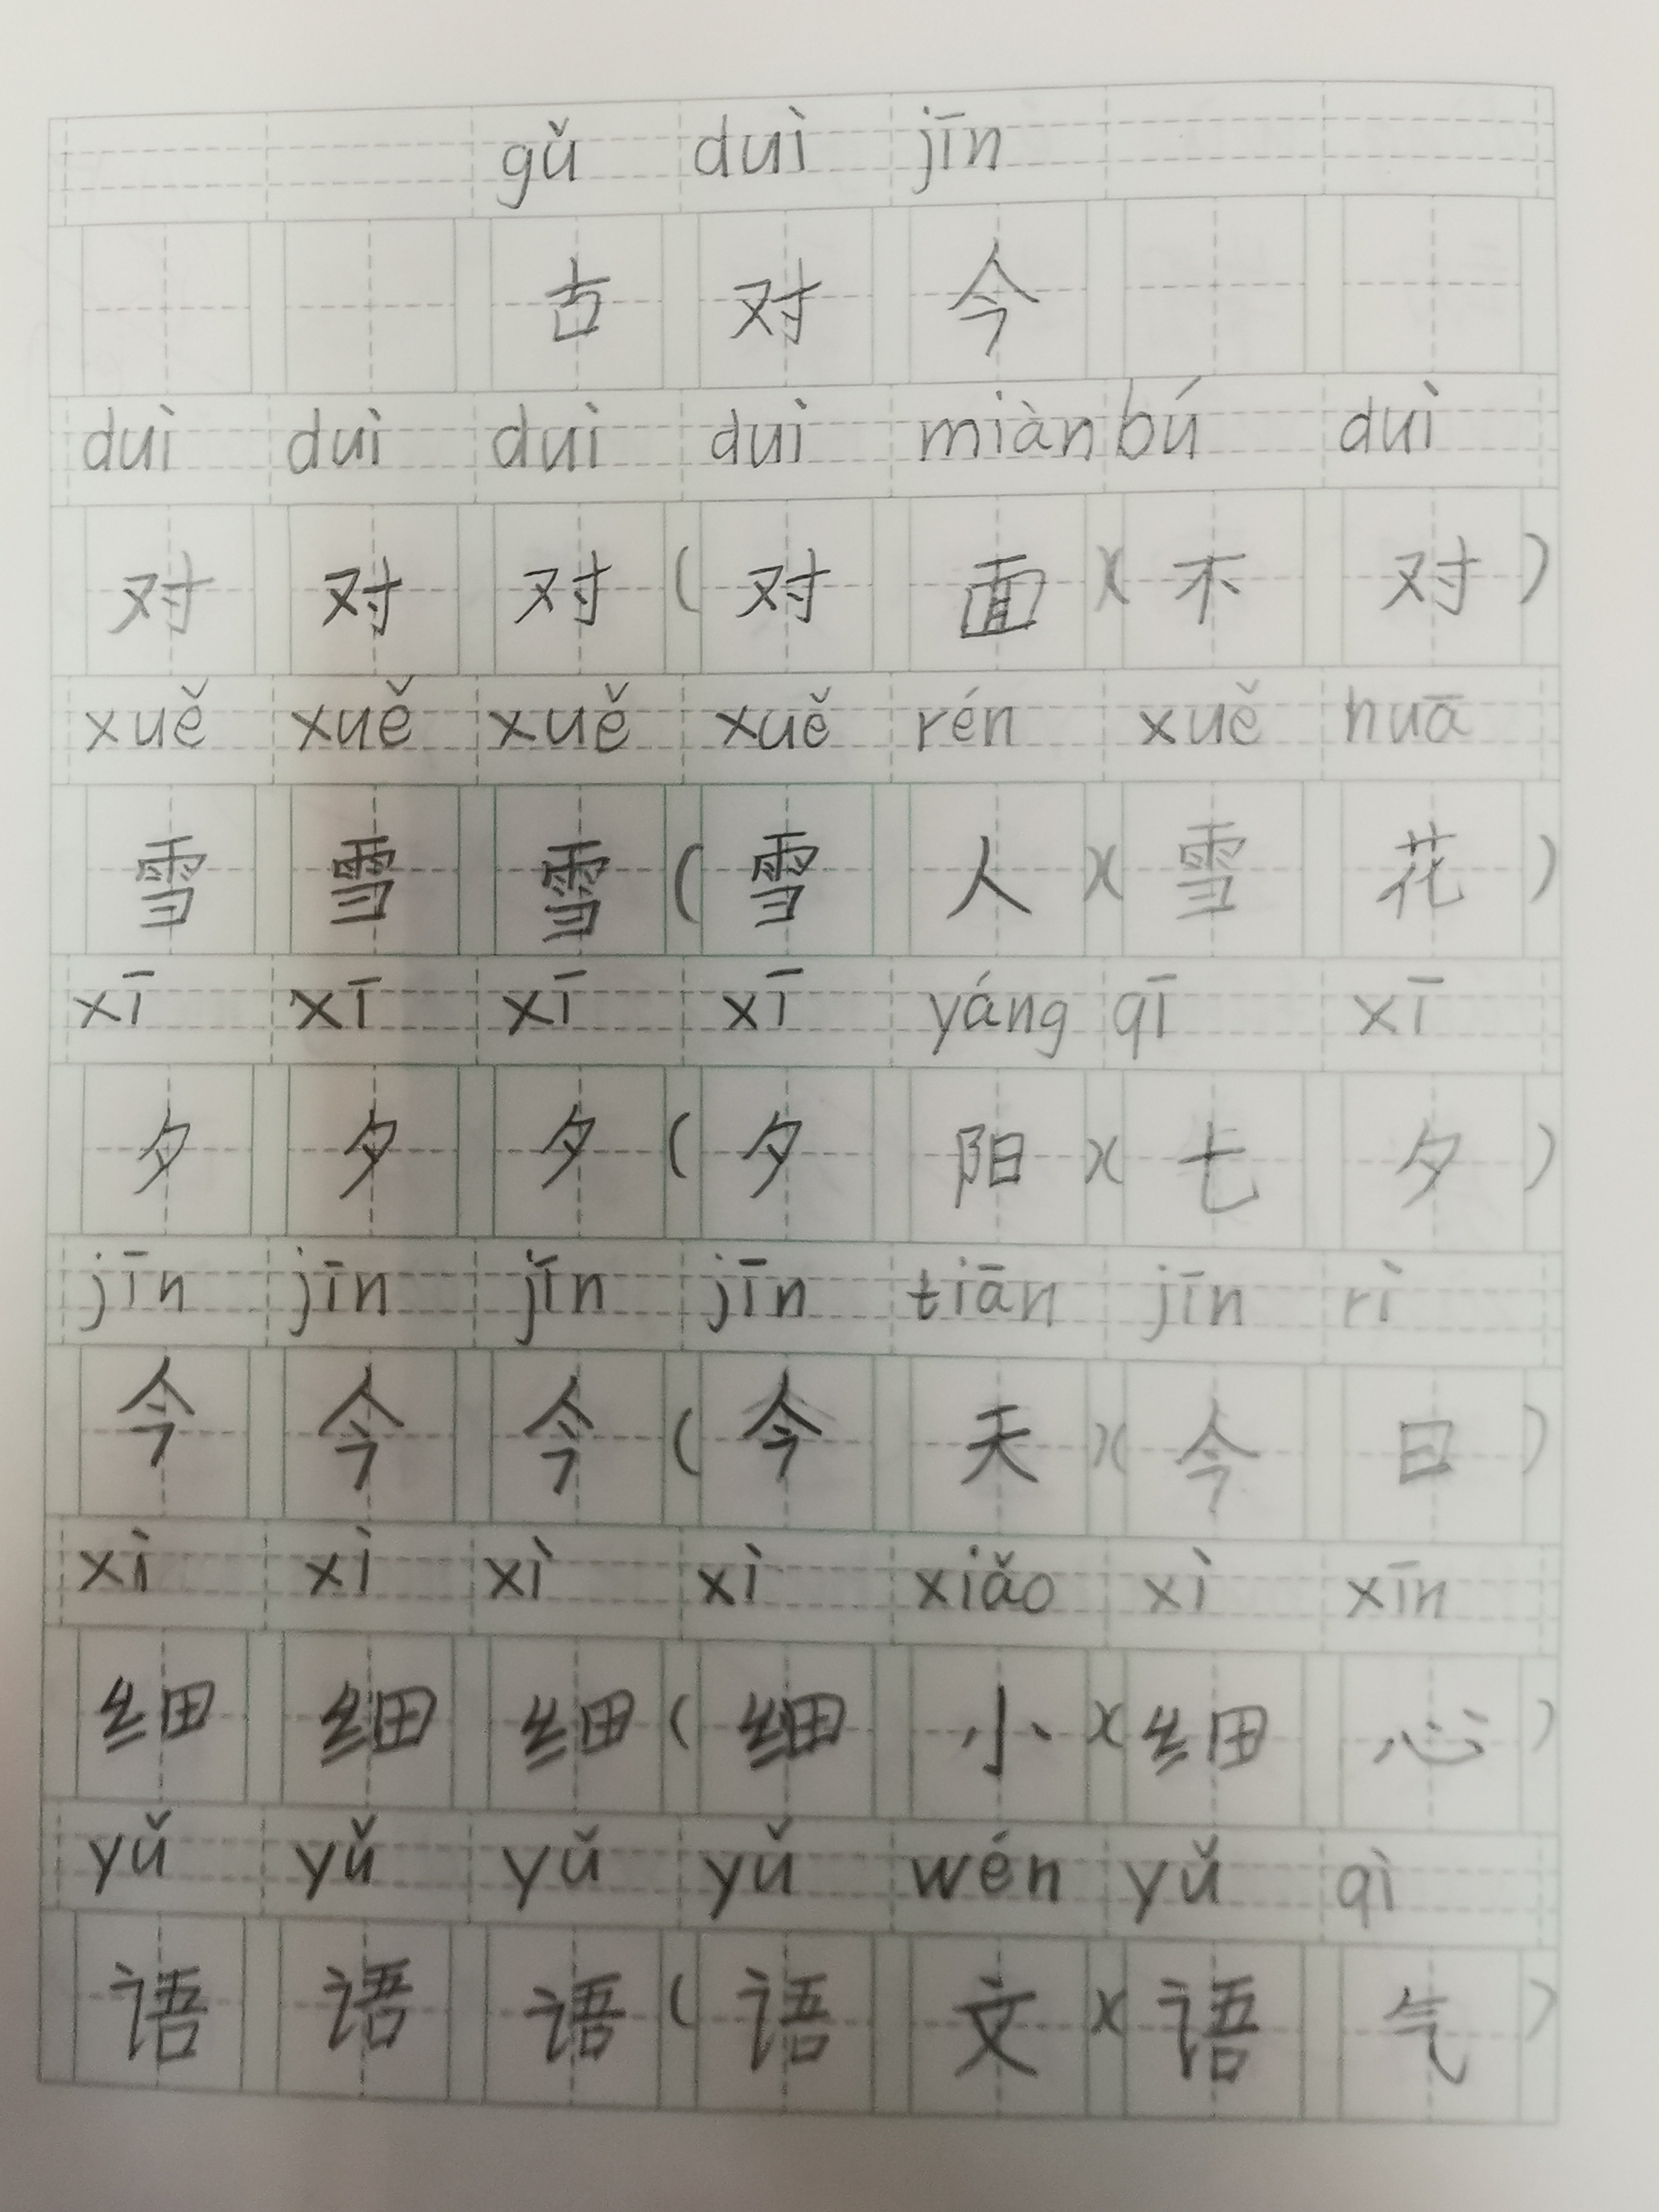 gǔ duì jīn
古 对 今
duì duì duì duì miàn bú duì
对 对 对 ( 对 面 )( 不 对 )
xuě xuě xuě xuě rén xuě huā
雪 雪 雪 ( 雪 人 )( 雪 花 )
xī xī xī xī yáng qī xī
夕 夕 夕 ( 夕 阳 )( 七 夕 )
jīn jīn jīn jīn tiān jīn rì
今 今 今 ( 今 天 )( 今 日 )
xì xì xì xì xiǎo xì xīn
细 细 细 ( 细 小 )( 细 心 )
yǔ yǔ yǔ yǔ wén yǔ qì
语 语 语 ( 语 文 )( 语 气 )